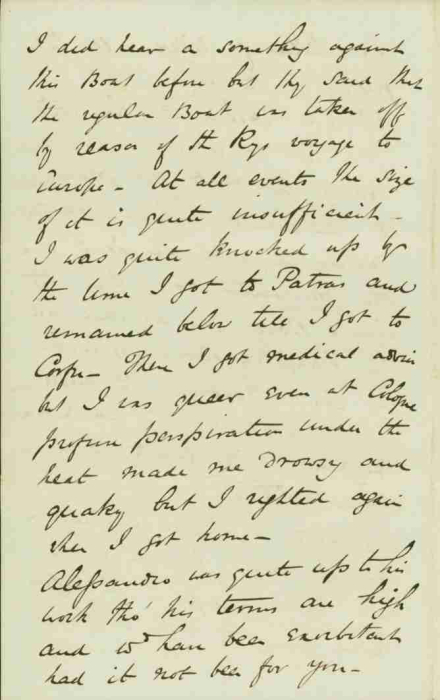 I did hear a something against
this Boat before but they said that
the regular Boat was taken off
by reason of the Kgs voyage to
Europe - At all events the size
of it is quite insufficient -
I was quite knocked up by
the time I got to Patras and
remained below till I got to
Corfu - There I got medical advice
but I was queer even at Cologne
profuse perspiration under the
heat made me Drowsy and
quaky but I righted again
when I got home -
Alessandro was quite up to his
work tho' his terms are high
and wd have been exorbitant
had it not been for you -